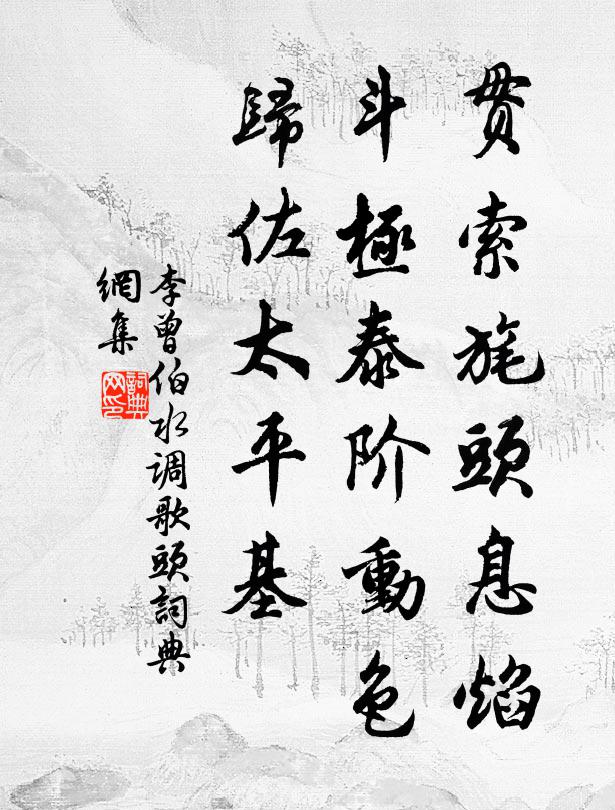 贯索旄頭息焰
斗極泰阶動色
歸佐太平基
李曾伯水调歌頭詞典
網集
詞典
网印